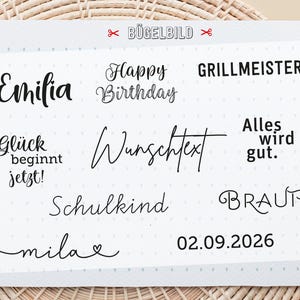 BÜGELBILD
Emilia
Happy
Birthday
GRILLMEISTER
Glück
beginnt
jetzt!
Wunschtext
Alles
wird
gut.
Schulkind
BRAUT
mila
02.09.2026